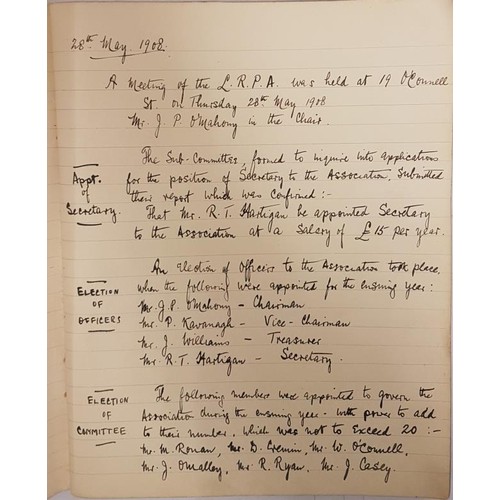 28th May, 1908.
A Meeting of the L.R.P.A. was held at 19 O'Connell
St. on Thursday 28th May 1908
Mr. J. P. O'Mahony in the Chair.
The Sub-Committee, formed to inquire into applications
Appt. of Secretary.
for the position of Secretary to the Association, Submitted
their report which was confirmed :-
That Mr. R. T. Hartigan be appointed Secretary
to the Association at a Salary of £15 per year.
An Election of Officers to the Association took place,
ELECTION OF OFFICERS
when the following were appointed for the ensuing year:
Mr. J.P. O'Mahony - Chairman
Mr. P. Kavanagh - Vice-Chairman
Mr. J. Williams - Treasurer
Mr. R.T. Hartigan - Secretary.
ELECTION OF COMMITTEE
The following members were appointed to govern the
Association during the ensuing year - with power to add
to their number, which was not to exceed 20 :-
Mr. M. Ronan, Mr. D. Cremin, Mr. W. O'Connell,
Mr. J. O'Malley, Mr. R. Ryan, Mr. J. Casey.